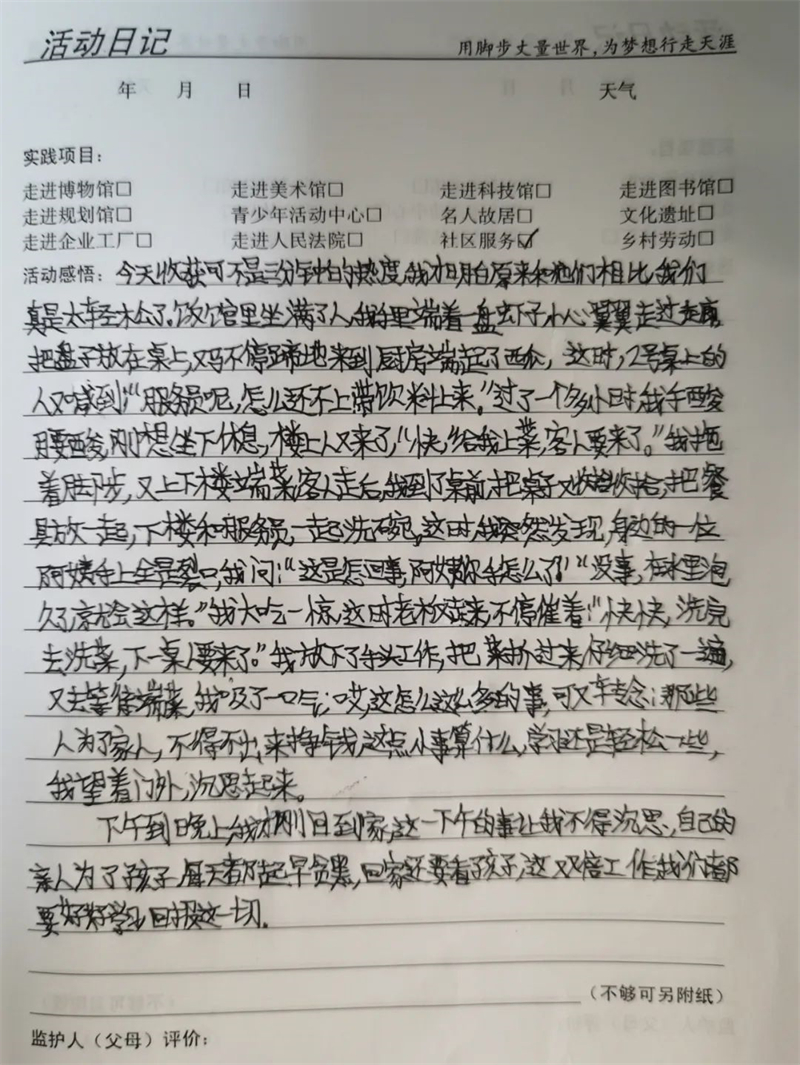 活动日记 用脚步丈量世界，为梦想行走天涯
年 月 日 天气
实践项目：
走进博物馆□ 走进美术馆□ 走进科技馆□ 走进图书馆□
走进规划馆□ 青少年活动中心□ 名人故居□ 文化遗址□
走进企业工厂□ 走进人民法院□ 社区服务☑ 乡村劳动□
活动感悟：今天收获可不是三分钟的热度，我才明白原来和他们相比，我们
真是太轻松了。饭馆里坐满了人，我手里端着一盘虾子小心翼翼走过走廊，
把盘子放在桌上，又马不停蹄地来到厨房端起了西，这时，2号桌上的
人又喊到：“服务员呢，怎么还不上带饮料上来。”过了一个多小时，我手酸
腰酸，刚想坐下休息，楼上人又来了，“快，给我上菜，客人要来了。”我拖
着脚步，又上下楼端菜，客人走后，我到了桌前，把桌子又收拾收拾，把餐
具放一起，下楼和服务员一起洗碗，这时我突然发现，身边的一位
阿姨手上全是裂口，我问：“这是怎回事，阿姨你手怎么了！”“没事，在水里泡
久了，就会这样。”我大吃一惊，这时老板来，不停催着：“快快，洗完
去洗菜，下一桌人要来了。”我放下了手头工作，把菜扒过来，仔细洗了一遍，
又去等待端菜，我吸了一口气：哎，这怎么这么多的事，可又转念：那些
人为了家人，不得不出来挣钱，这点小事算什么，学习还是轻松一些，
我望着门外，沉思起来。
下午到晚上，我才刚回到家，这一下午的事让我不得沉思，自己的
亲人为了孩子每天都起早贪黑，回家还要看孩子，这双倍工作，我们都
要好好学习回报这一切。
（不够可另附纸）
监护人（父母）评价：